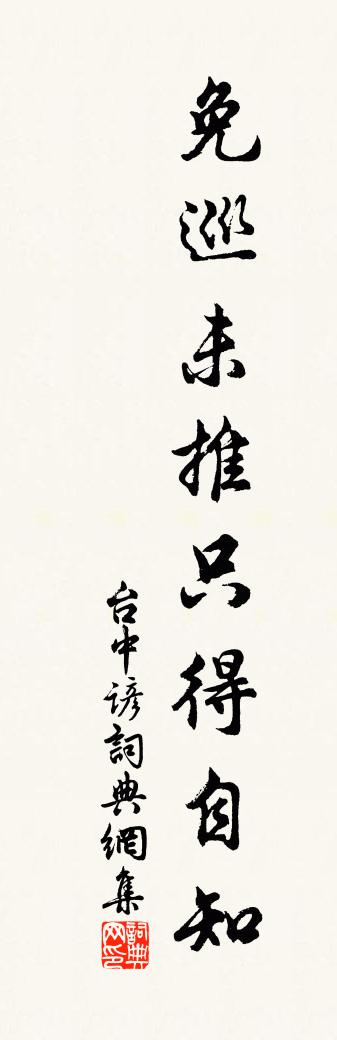 免巡未推只得自知
台中諺詞典網集
詞典网印